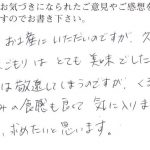 お気づきになられたご意見やご感想
すのでお書き下さい。
お土産にいただいのですが、ク
ごもりは とても 美味でした
は敬遠してしまうのですが、くる
みの食感も良くて 気に入りま
求めたいと思います。